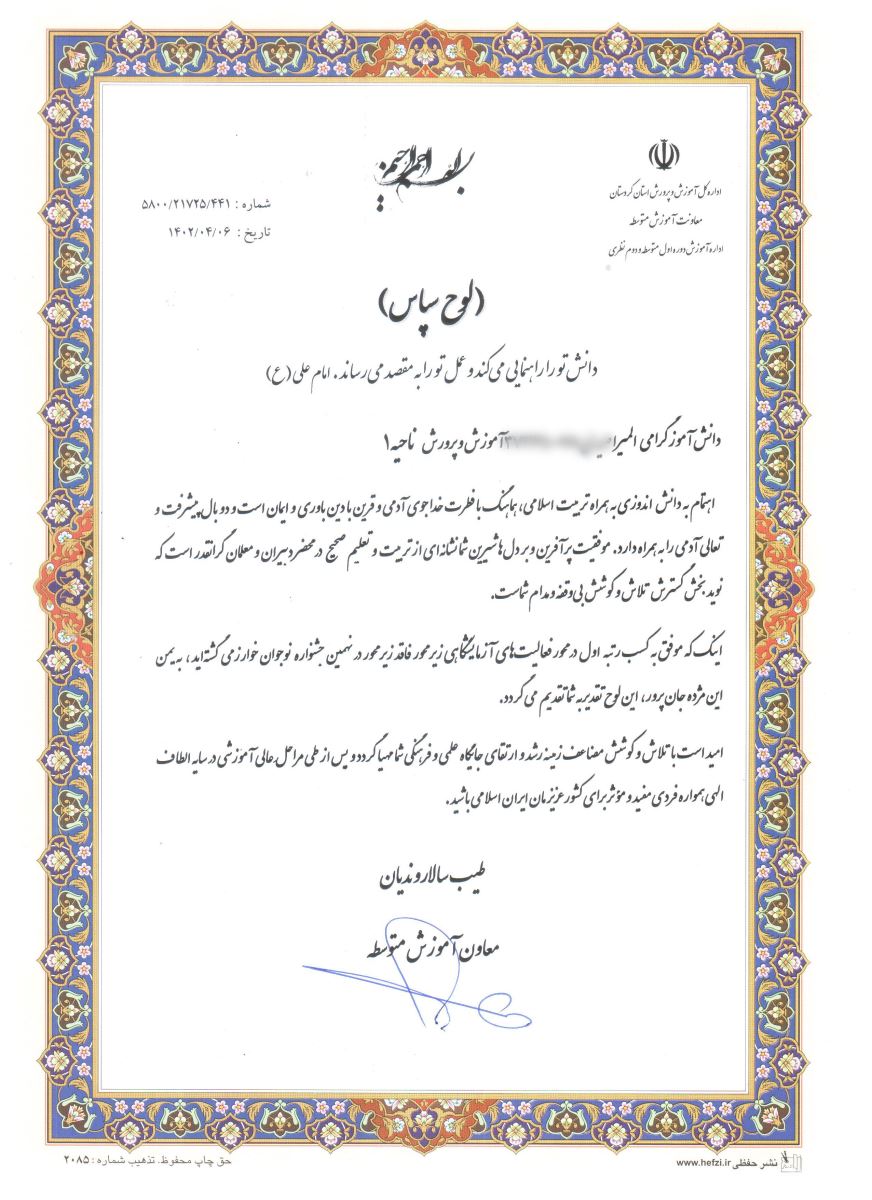 بسم الله الرحمن الرحیم
اداره کل آموزش و پرورش استان کردستان
معاونت آموزش متوسطه
اداره آموزش دوره اول متوسطه و دوم نظری
شماره : ۵۸۰۰/۲۱۷۲۵/۴۴۱
تاریخ : ۱۴۰۲/۰۴/۰۶
(لوح سپاس)
دانش تو را راهنمایی می کند و عمل تو را به مقصد می رساند . امام علی (ع)
دانش آموز گرامی المیرا آموزش و پرورش ناحیه ۱
اهتمام به دانش اندوزی به همراه تربیت اسلامی، هماهنگ با فطرت خداجوی آدمی و قرین با دین باوری و ایمان است و دو بال پیشرفت و
تعالی آدمی را به همراه دارد. موفقیت پرآفرین و بر دل ها شیرین شما نشانه ای از تربیت و تعلیم صحیح در محضر دبیران و معلمان گرانقدر است که
نوید بخش گسترش تلاش و کوشش بی وقفه و مدام شماست.
اینک که موفق به کسب رتبه اول در محور فعالیت های آزمایشگاهی زیر محور فاقد زیر محور در نهمین جشنواره نوجوان خوارزمی گشته اید ، به یمن
این مژده جان پرور ، این لوح تقدیر به شما تقدیم می گردد.
امید است با تلاش و کوشش مضاعف زمینه رشد و ارتقای جایگاه علمی و فرهنگی شما مهیا گردد و پس از طی مراحل عالی آموزشی در سایه الطاف
الهی همواره فردی مفید و مؤثر برای کشور عزیزمان ایران اسلامی باشید .
طیب سالاروندیان
معاون آموزش متوسطه
نشر حفظی www.hefzi.ir
حق چاپ محفوظ. تذهیب شماره : ۲۰۸۵